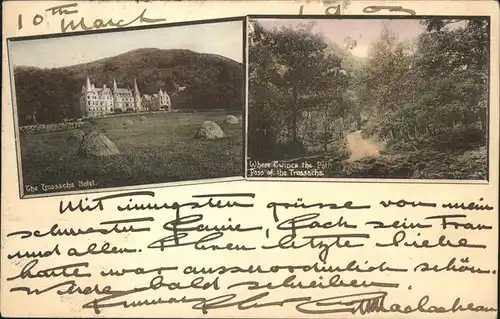 10th March 190
The Trossachs Hotel.
Where Twines the Path
Pass of the Trossachs
Mit innigsten grüsse von mein
schwester Janie, Jach sein Frau
und allen. Ihren letzte liebe
karte war ausserordinlich schön.
Werde bald schreiben.
Immer Maclachlan